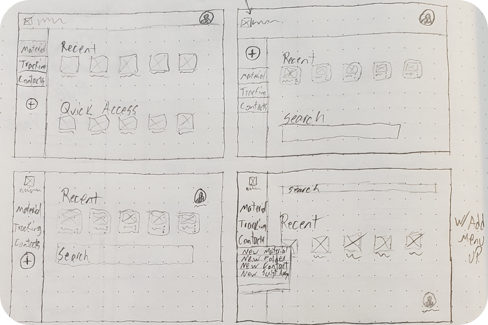 Recent
Material
Tracking
Contacts
Quick Access
Recent
Material
Tracking
Contacts
Search
Recent
Material
Tracking
Contacts
Search
Search
Material
Tracking
Contacts
Recent
New Material
New Folder
New Contact
New
W/ Add
Menu
UP